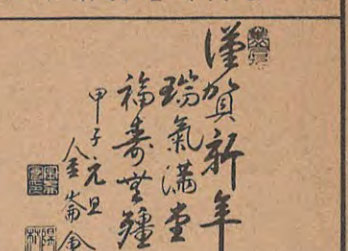 謹賀新年
瑞氣滿堂
福壽無疆
甲子元旦